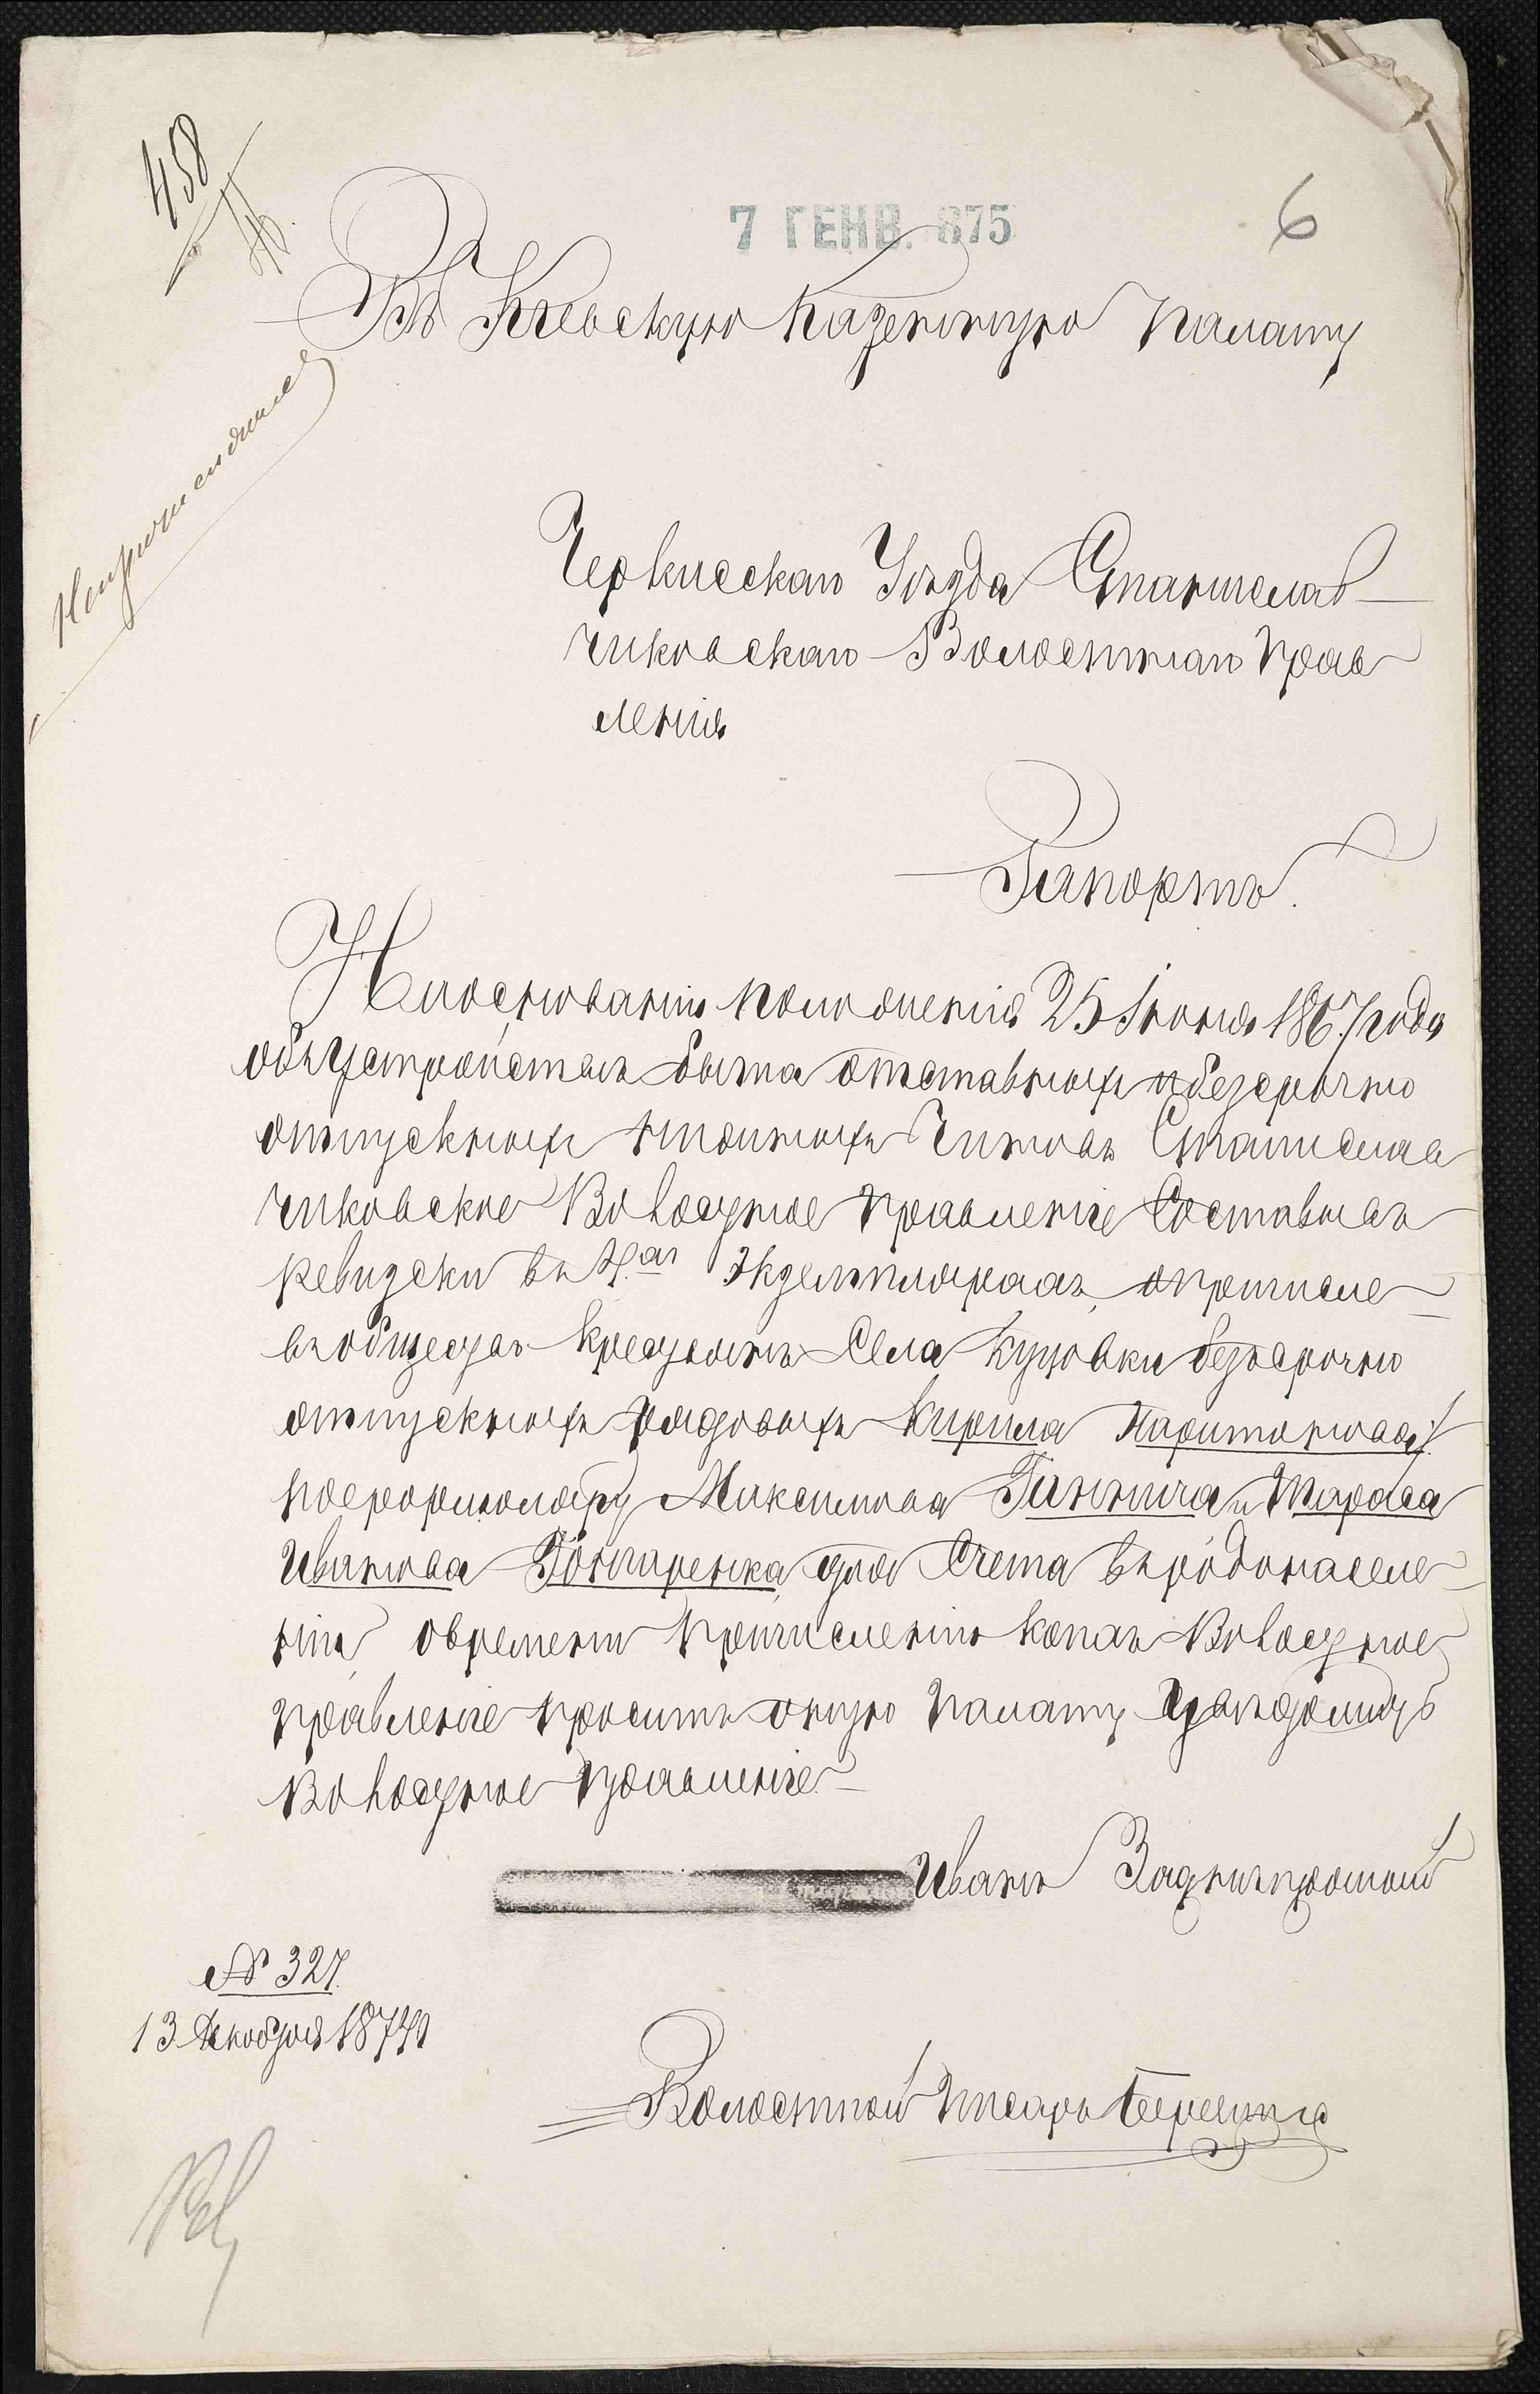 458
7 ГЕНВ. 875
6
Въ Кіевскую Казенную Палату
Черкасскаго Уѣзда Станислав
чиковскаго Волостнаго Прав
ленія
Рапортъ.
На основаніи положенія 25 Іюня 1867 года
объ устройствѣ быта отставныхъ и безсрочно
отпускныхъ нижныхъ Чиновъ Станислав
чиковское Волостное Правленіе Составивъ
ревизски въ 4.ах Экземплярахъ, о причисле
въ общество крестьянъ Села Куцовки безъсрочно
отпускныхъ рядовыхъ Кирила Харитонова
Максимова Ганнича и Тараса
Иванова Гончаренка для Счета въ родонаселе
ніи о времени причисленію Волостное
правленіе проситъ оную Палату
Волостное Правленіе
Иванъ
№ 327.
13 Декабря 1874
Волостной Писарь